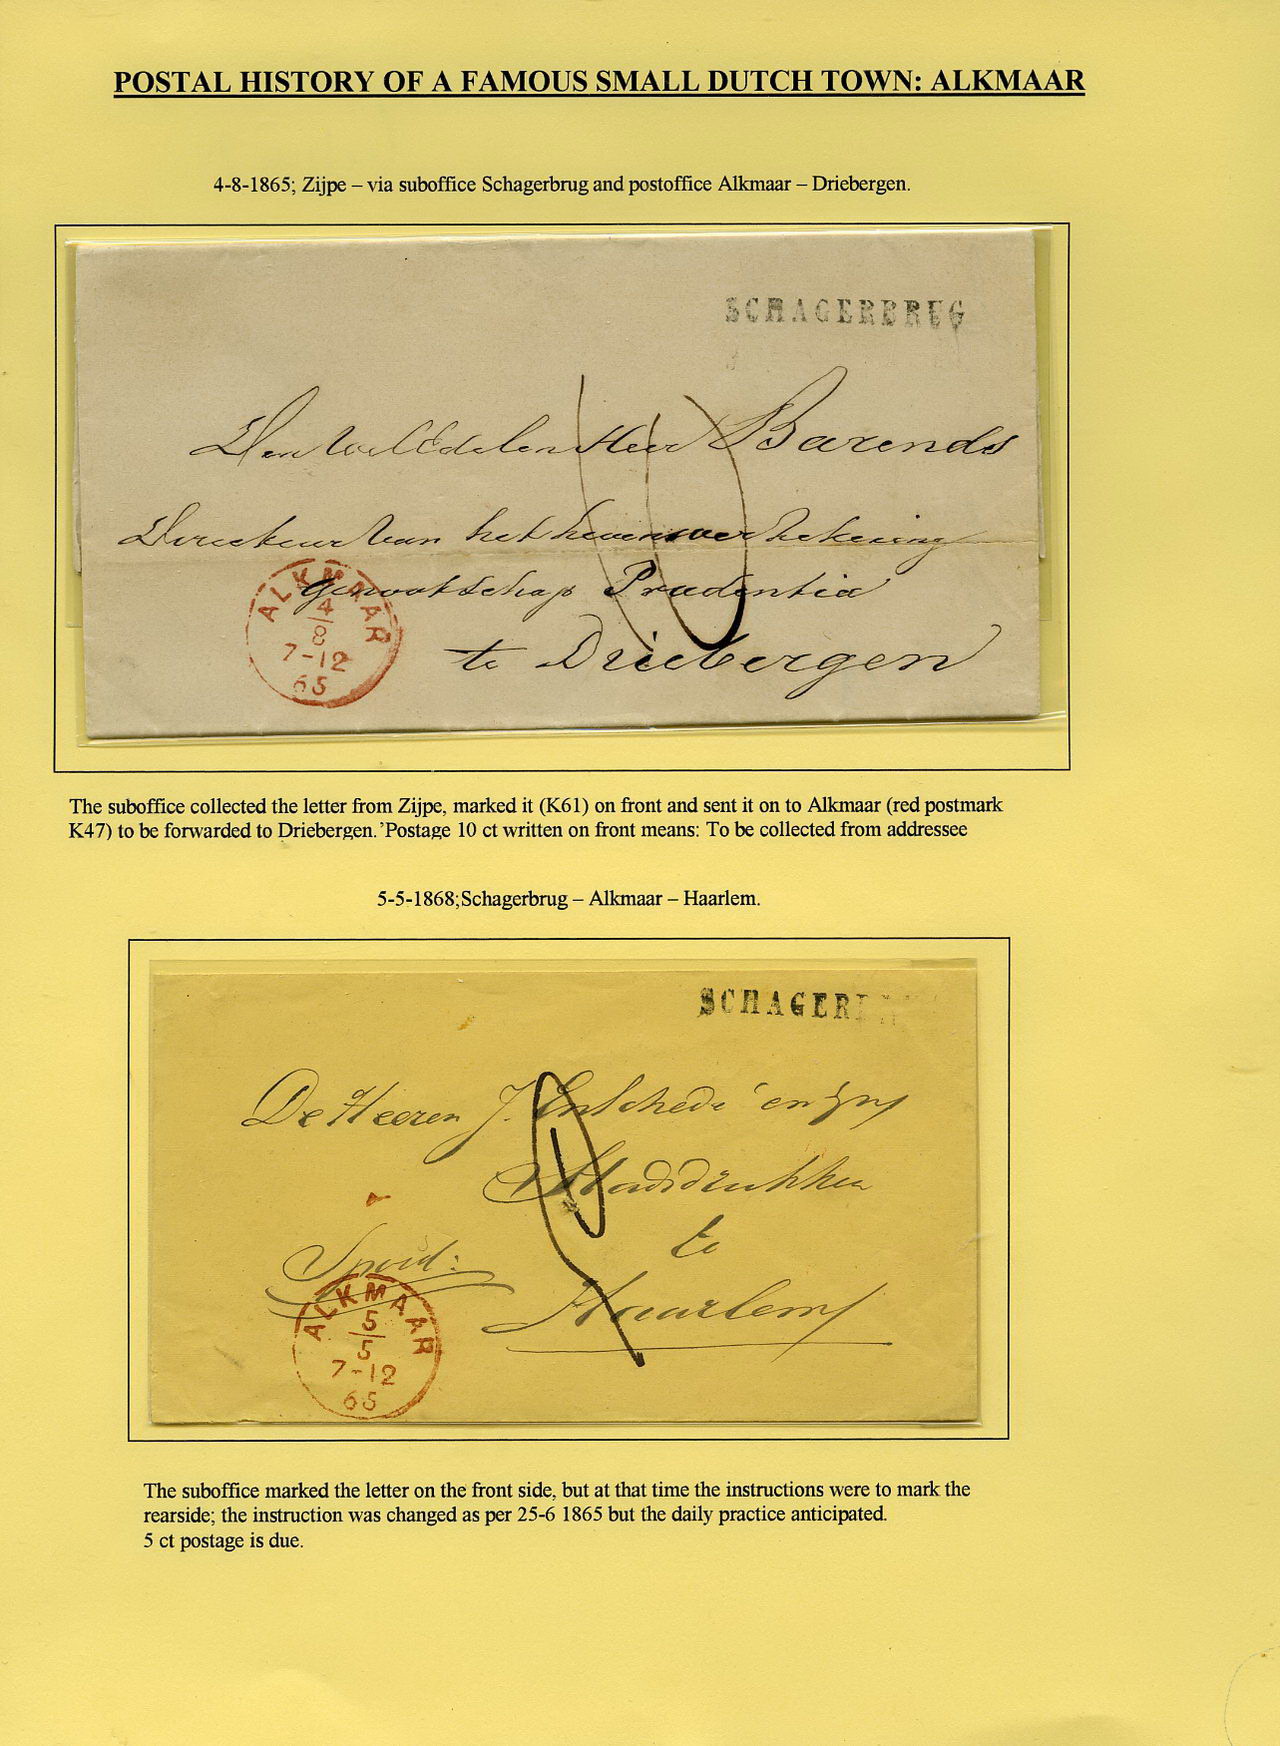 POSTAL HISTORY OF A FAMOUS SMALL DUTCH TOWN: ALKMAAR
4-8-1865; Zijpe – via suboffice Schagerbrug and postoffice Alkmaar – Driebergen.
SCHAGERBRUG
Den WelEdelen Heer Barends
Directeur van het levensverzekering
Genootschap Prudentia
te Driebergen
10
ALKMAAR
4
8
7-12
65
The suboffice collected the letter from Zijpe, marked it (K61) on front and sent it on to Alkmaar (red postmark
K47) to be forwarded to Driebergen.'Postage 10 ct written on front means: To be collected from addressee
5-5-1868;Schagerbrug – Alkmaar – Haarlem.
SCHAGER
De Heeren J. Enschedé en
Stadsdrukker
te
Spoed:
Haarlem
5
ALKMAAR
5
5
7-12
65
The suboffice marked the letter on the front side, but at that time the instructions were to mark the
rearside; the instruction was changed as per 25-6 1865 but the daily practice anticipated.
5 ct postage is due.